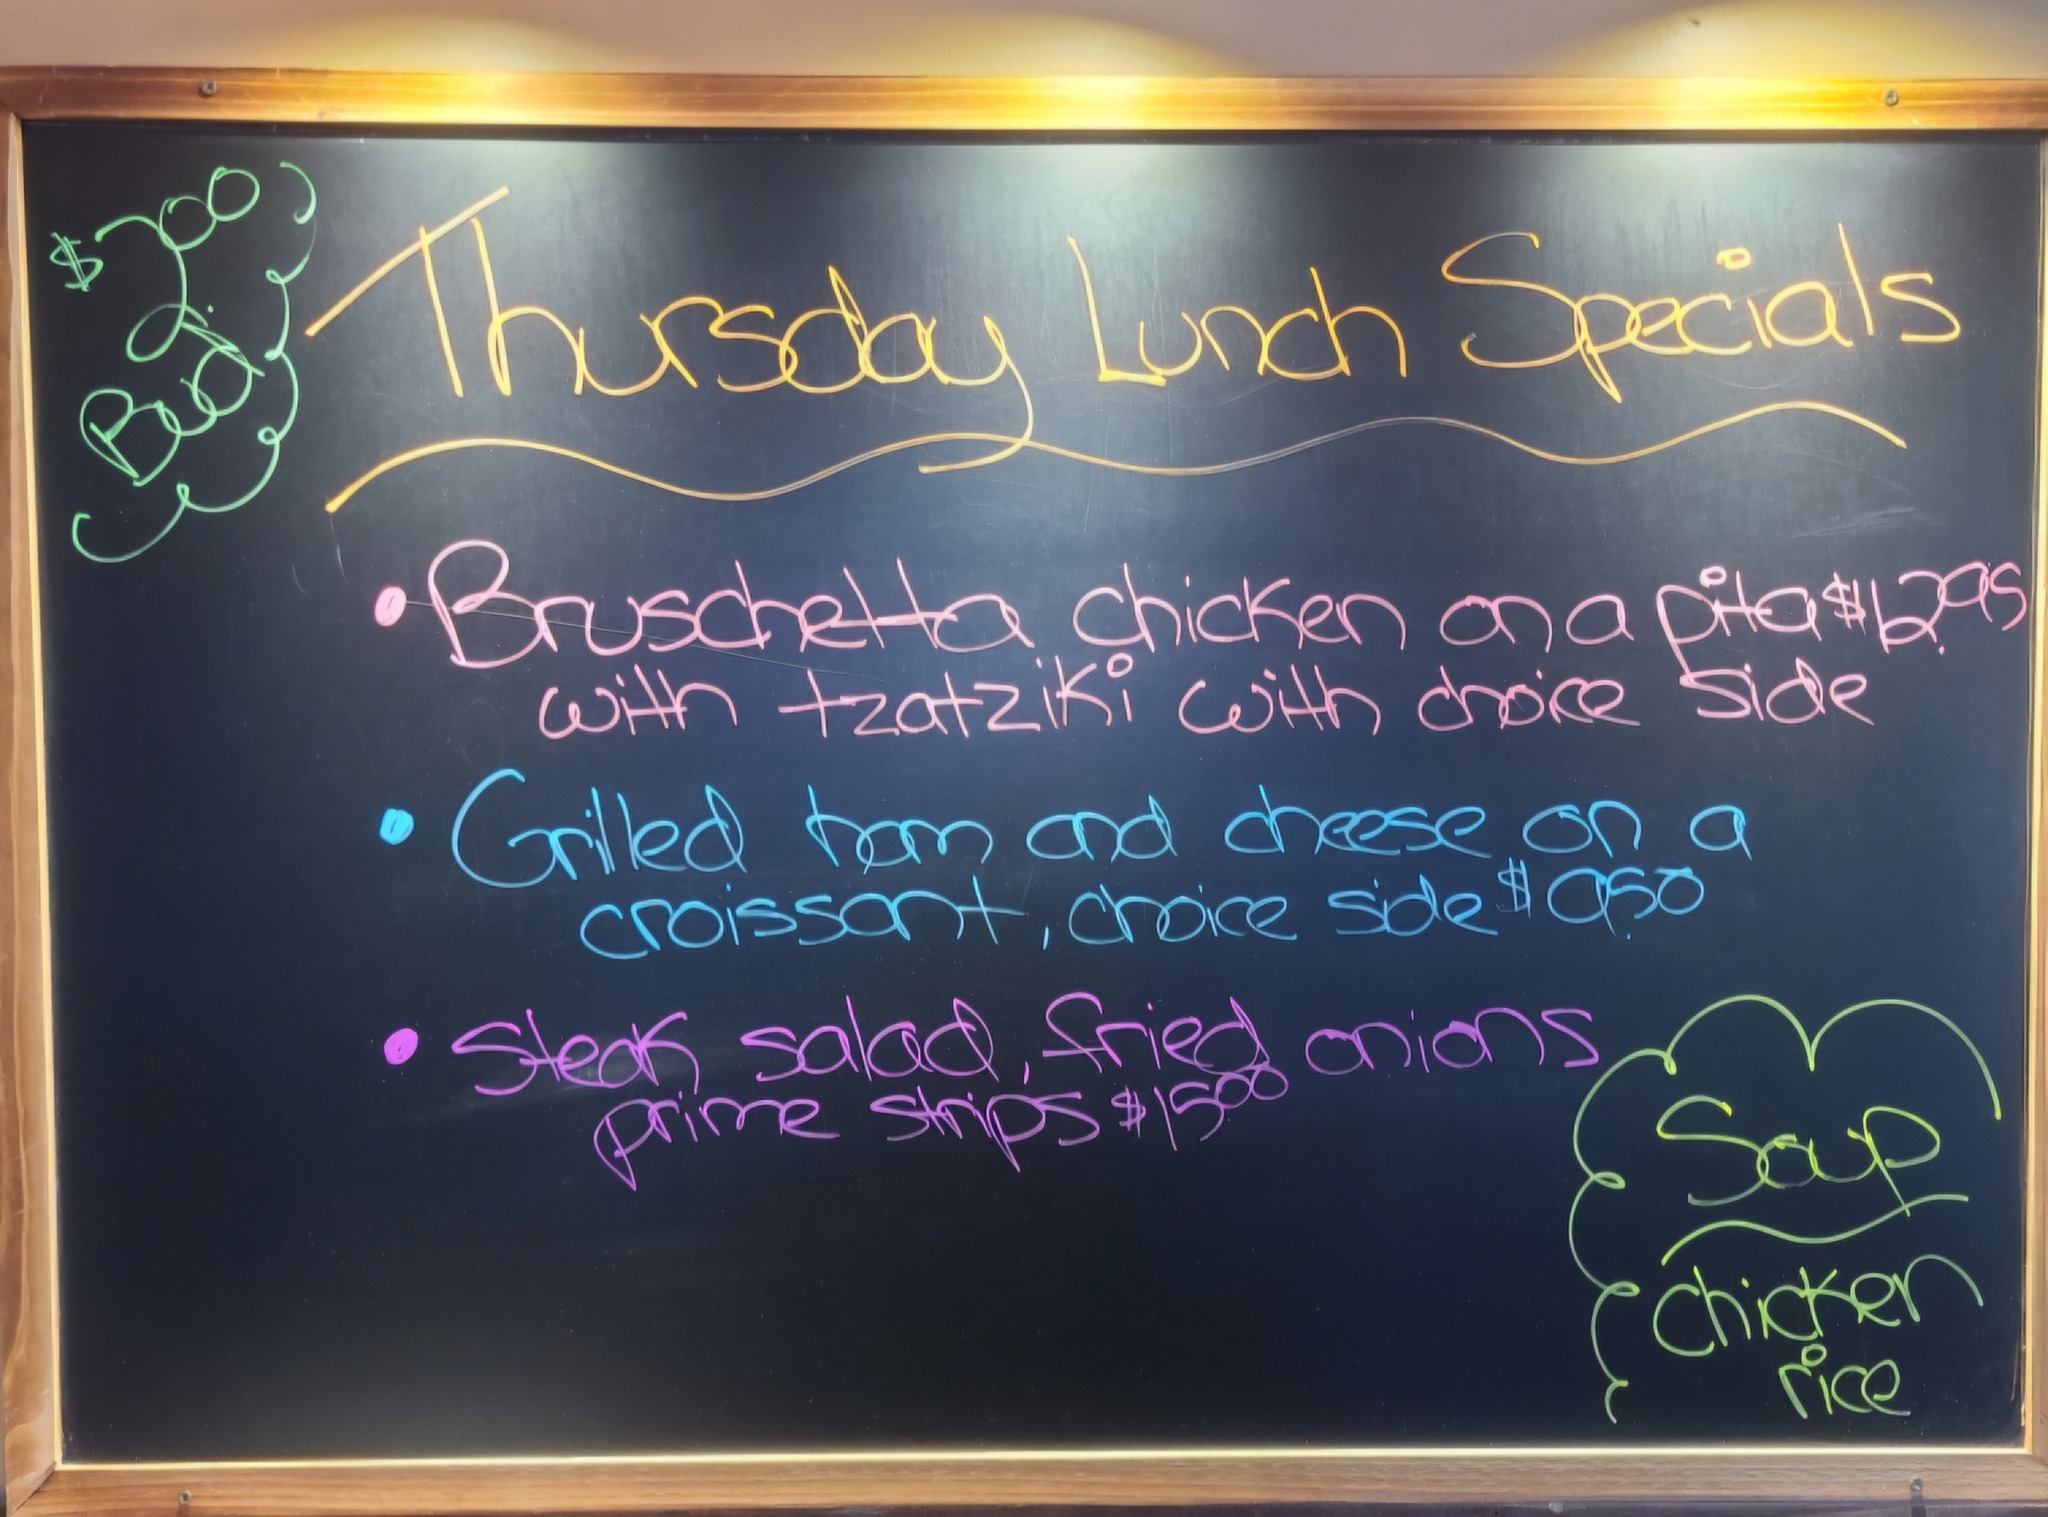 $700
Bud
Thursday Lunch Specials
• Bruschetta chicken on a pita $12.95
with tzatziki with choice side
• Grilled ham and cheese on a
croissant, choice side $9.50
• Steak salad, fried onions
prime strips $15.00
Soup
chicken
rice